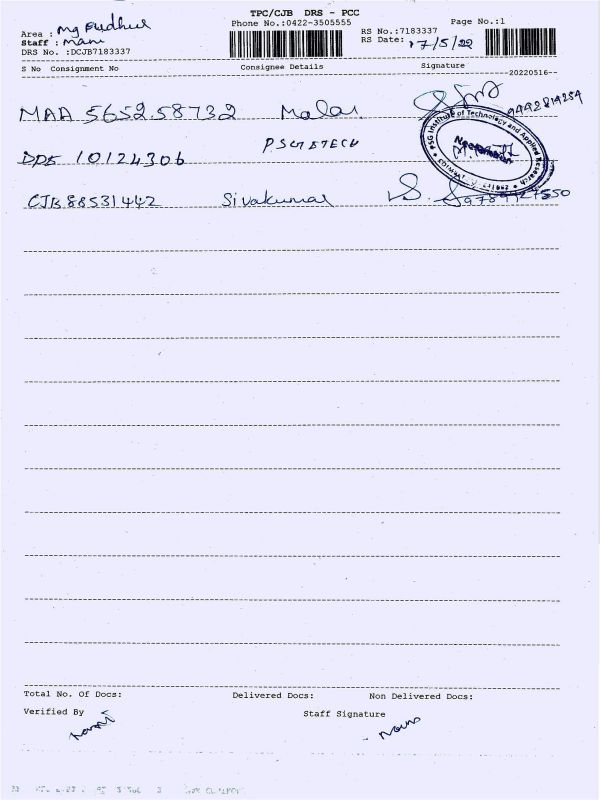 TPC/CJB DRS - PCC
Phone No.:0422-3505555
Page No.:1
Area : Mg Pudhur
Staff : Mani
DRS No. :DCJB7183337
RS No.:7183337
RS Date: 17/5/22
S No Consignment No Consignee Details Signature
--20220516--
MAA 565258732 Malar
PSG Institute of Technology and Applied Research
10124306 PSG ITECH
CJB 88531442 Sivakumar
Total No. Of Docs: Delivered Docs: Non Delivered Docs:
Verified By Staff Signature